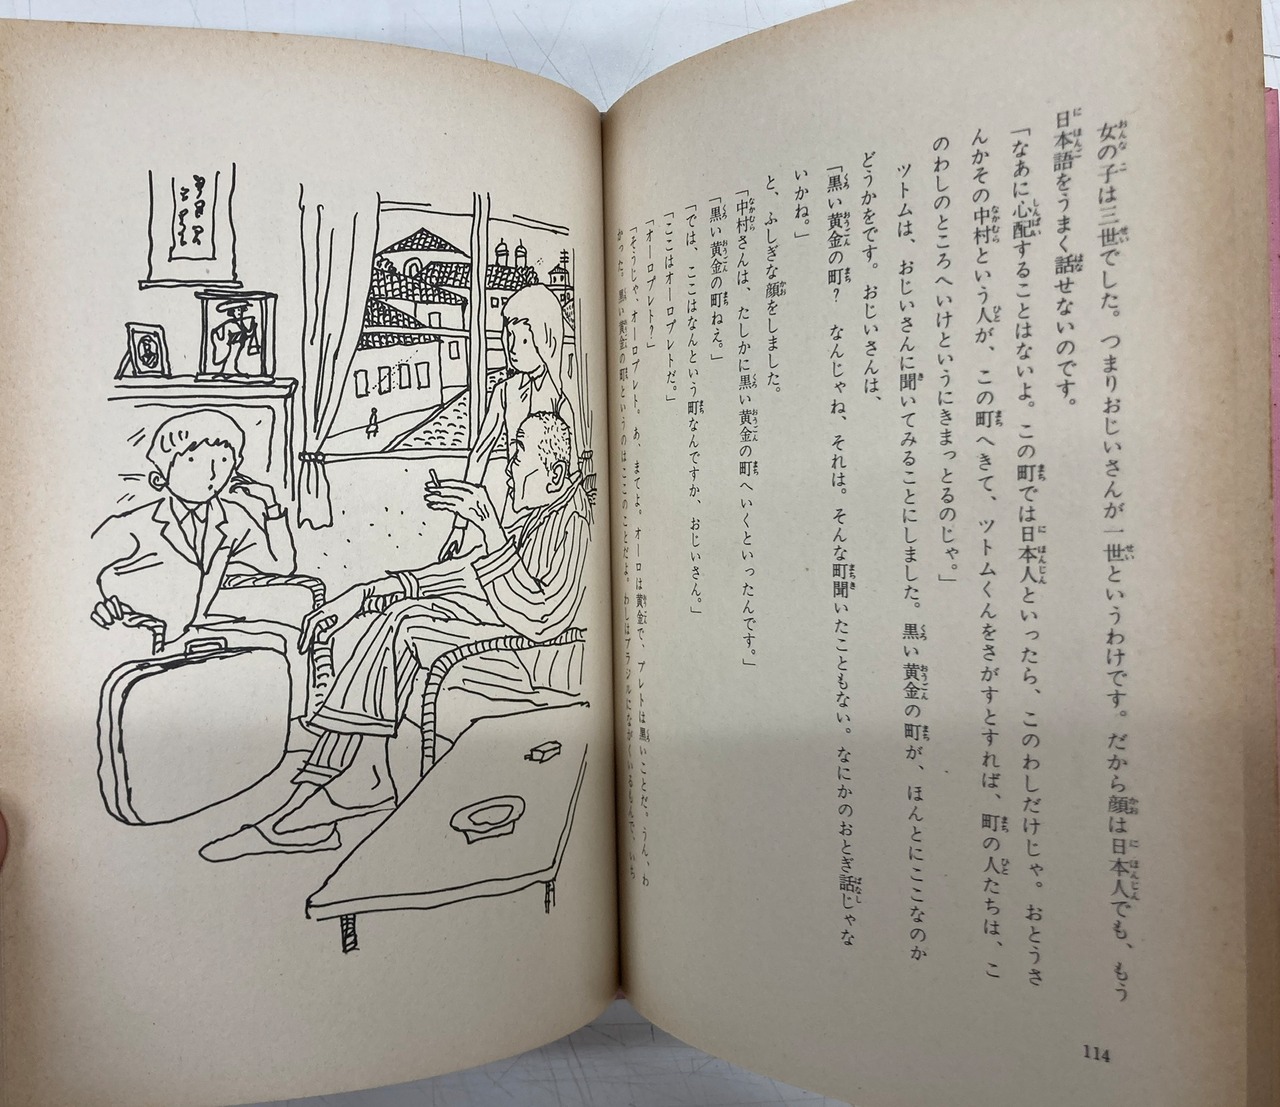 女の子は三世でした。つまりおじいさんが一世というわけです。だから顔は日本人でも、もう
日本語をうまく話せないのです。
「なあに心配することはないよ。この町では日本人といったら、このわしだけじゃ。おとうさ
んかその中村という人が、この町へきて、ツトムくんをさがすとすれば、町の人たちは、こ
のわしのところへいけというにきまっとるのじゃ。」
ツトムは、おじいさんに聞いてみることにしました。黒い黄金の町が、ほんとにここなのか
どうかをです。おじいさんは、
「黒い黄金の町？　なんじゃね、それは。そんな町聞いたこともない。なにかのおとぎ話じゃな
いかね。」
と、ふしぎな顔をしました。
「中村さんは、たしかに黒い黄金の町へいくといったんです。」
「黒い黄金の町ねえ。」
「では、ここはなんという町なんですか、おじいさん。」
「ここはオーロプレトだ。」
「オーロプレト？」
「そうじゃ、オーロプレト。あ、まてよ。オーロは黄金で、プレトは黒いことだ。うん、わ
かった。黒い黄金の町というのはここのことだよ。わしはブラジルにながくいるもんで、いち
114